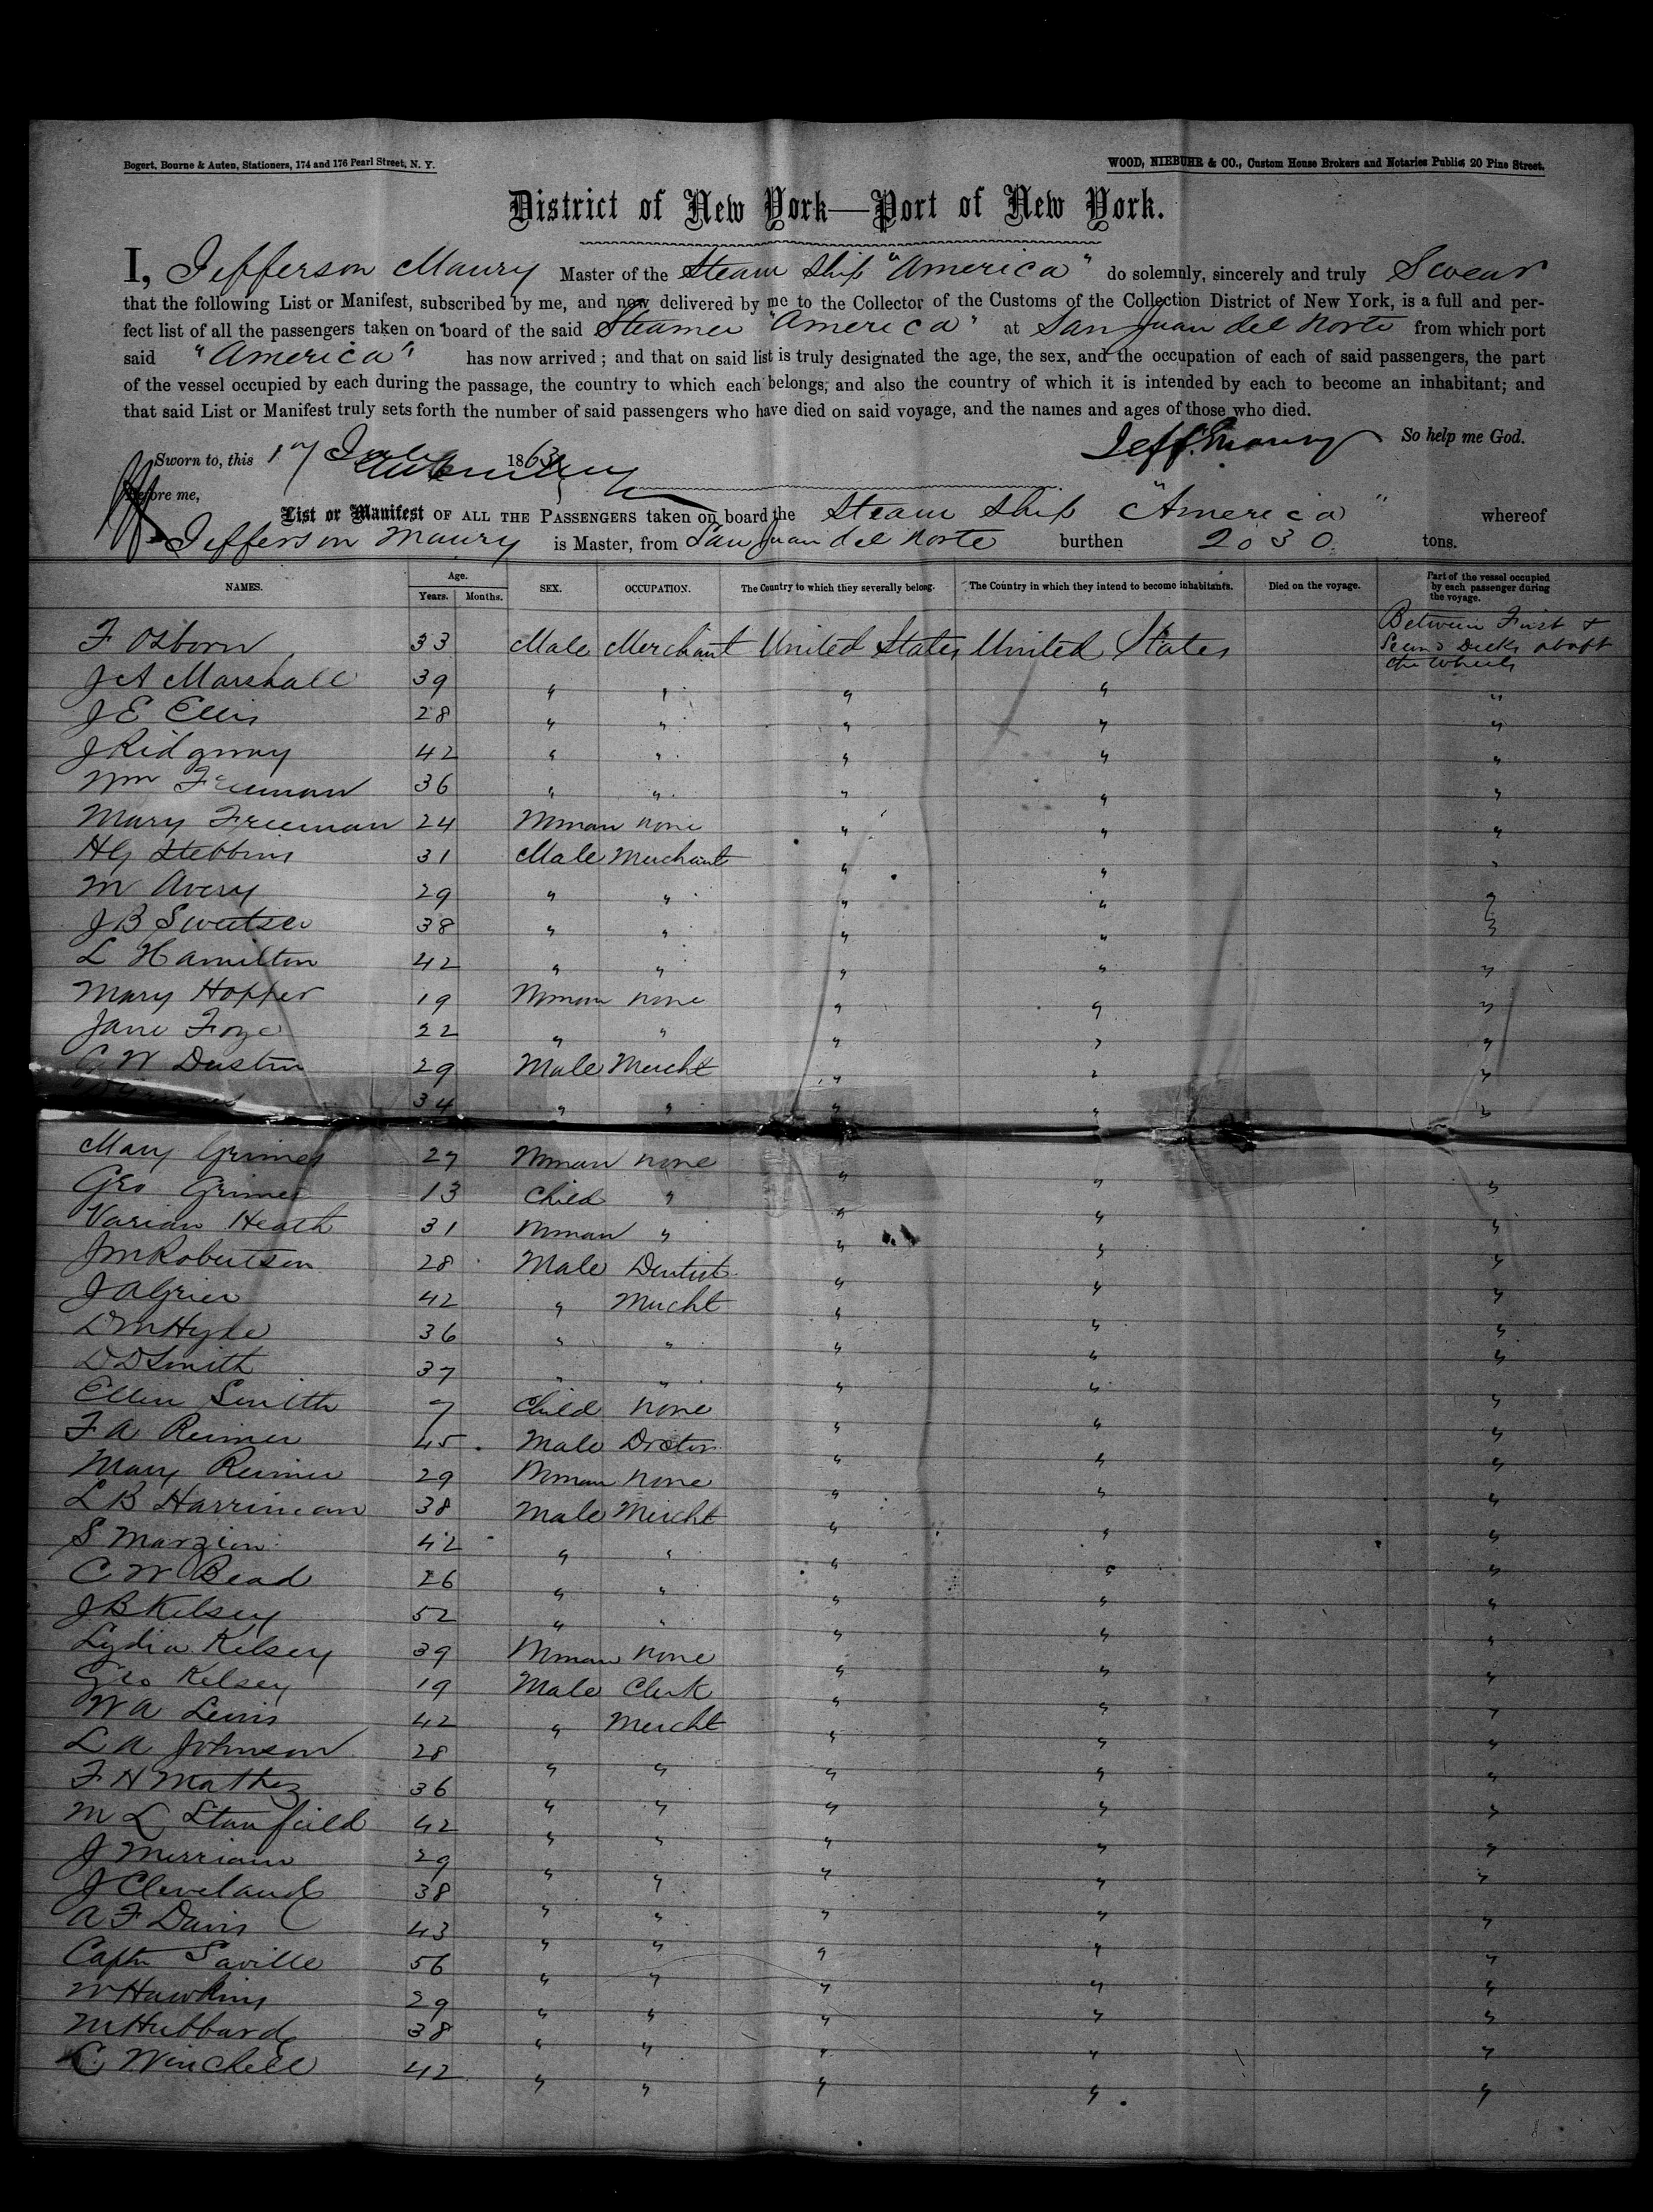 Bogert, Bourne & Auten, Stationers, 174 and 176 Pearl Street, N. Y.
WOOD, NIEBUHR & CO., Custom House Brokers and Notaries Public, 20 Pine Street.
District of New York—Port of New York.
I, Jefferson Maury Master of the Steam Ship "America" do solemnly, sincerely and truly Swear
that the following List or Manifest, subscribed by me, and now delivered by me to the Collector of the Customs of the Collection District of New York, is a full and per-
fect list of all the passengers taken on board of the said Steamer "America" at San Juan del Norte from which port
said "America" has now arrived; and that on said list is truly designated the age, the sex, and the occupation of each of said passengers, the part
of the vessel occupied by each during the passage, the country to which each belongs, and also the country of which it is intended by each to become an inhabitant; and
that said List or Manifest truly sets forth the number of said passengers who have died on said voyage, and the names and ages of those who died.
So help me God.
Jeff. Maury
Sworn to, this 1863
Before me,
List or Manifest OF ALL THE PASSENGERS taken on board the Steam Ship "America" whereof
Jefferson Maury is Master, from San Juan del Norte burthen 2030 tons.
NAMES. Age. Years. Months. SEX. OCCUPATION. The Country to which they severally belong. The Country in which they intend to become inhabitants. Died on the voyage. Part of the vessel occupied by each passenger during the voyage.
F Osborn 33 Male Merchant United States United States Between First & Second Decks abaft the Wheels
J A Marshall 39 " " " " "
J E Ellis 28 " " " " "
J Ridgway 42 " " " " "
Wm Freeman 36 " " " " "
Mary Freeman 24 Woman none " " "
H G Stebbins 31 Male Merchant " " "
M Avery 29 " " " " "
J B Sweetser 38 " " " " "
L Hamilton 42 " " " " "
Mary Hopper 19 Woman none " " "
Jane 22 " " " " "
G W Dustin 29 Male Mercht " " "
34 " " " " "
Mary Grimes 27 Woman none " " "
Geo Grimes 13 Child " " " "
Varian Heath 31 Woman " " " "
J M Robertson 28 Male Dentist " " "
J A Grier 42 " Mercht " " "
D M Hyde 36 " " " " "
D D Smith 37 " " " " "
Ellen Smith 7 Child none " " "
F A Reimer 45 Male Doctor " " "
Mary Reimer 29 Woman none " " "
L B Harriman 38 Male Mercht " " "
S Marzion 42 " " " " "
C W Bead 26 " " " " "
J B Kelsey 52 " " " " "
Lydia Kelsey 39 Woman none " " "
Geo Kelsey 19 Male Clerk " " "
W A Lewis 42 " Mercht " " "
L A Johnson 28 " " " " "
F H Mathez 36 " " " " "
M L Stanfield 42 " " " " "
J Merriam 29 " " " " "
J Cleveland 38 " " " " "
A F Davis 43 " " " " "
Captn Saville 56 " " " " "
W Hawkins 29 " " " " "
M Hubbard 38 " " " " "
C Winchell 42 " " " " "